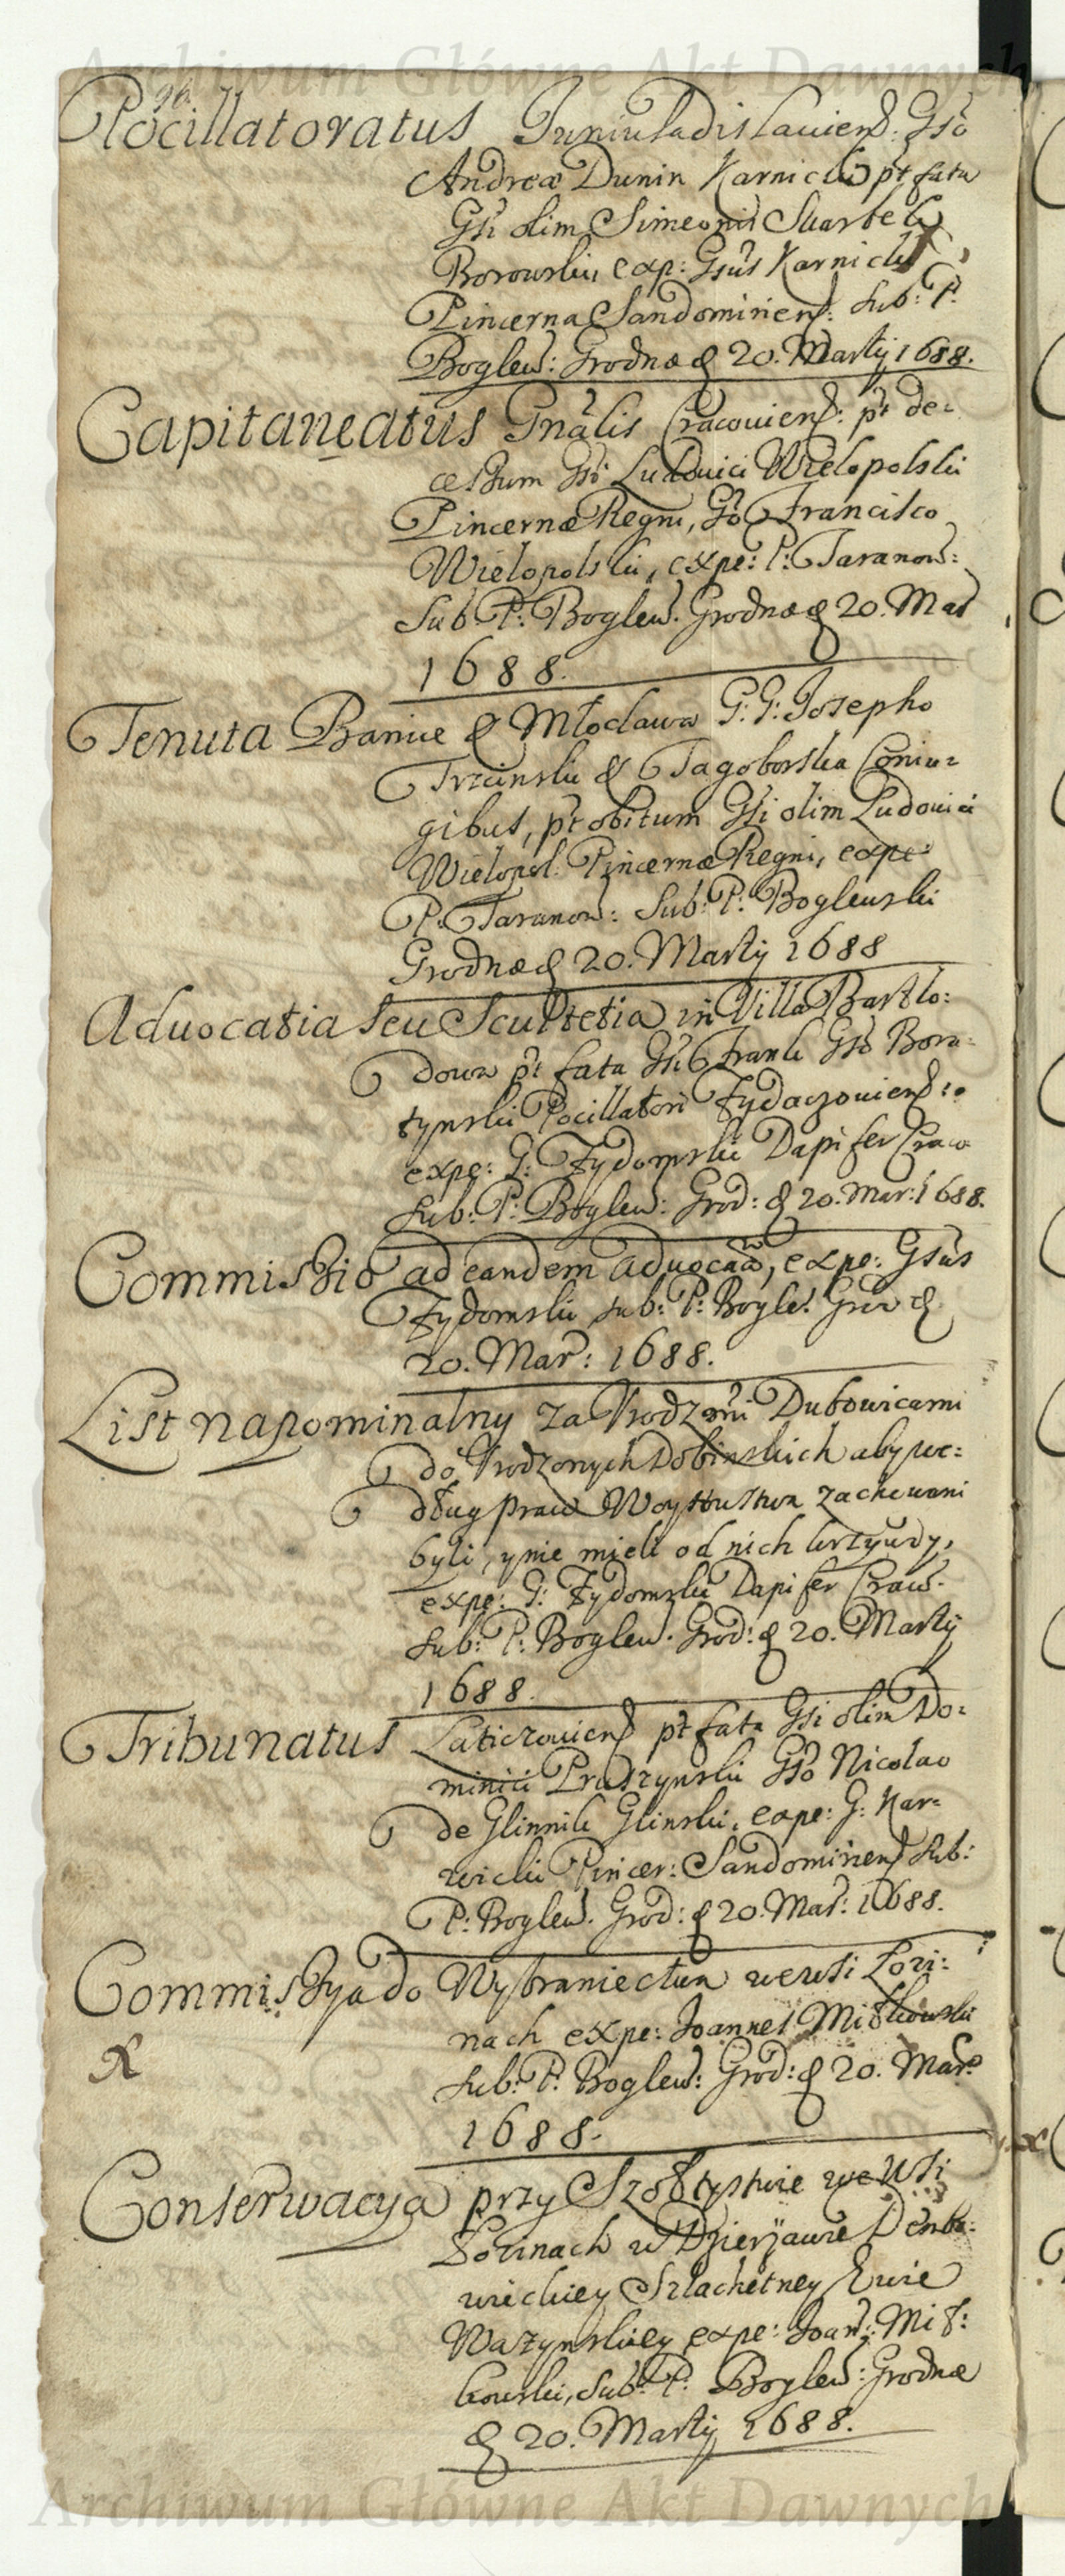 Archiwum Główne Akt Dawnych
96.
Pocillatoratus Juniuladislauiens: Gso
Andreæ Dunin Karnicki pt fata
Gsi olim Simeonis Skarbek
Borowski, exp: Gsus Karnicki
Pincerna Sandomiriens: Sub: P.
Boglew: Grodnæ d 20. Martij 1688.
Capitaneatus Gnalis Cracouiens: pt de-
cessum Gsi Ludouici Wielopolski
Pincernæ Regni, Gso Francisco
Wielopolski, expe: P: Taranow:
Sub P: Boglew. Grodnæ d 20. Mar
1688.
Tenuta Banice & Młoclawa G: G: Josepho
Trzinski & Tagoborska Coniu-
gibus, pt obitum Gsi olim Ludouici
Wielopol. Pincernæ Regni, expe:
P. Taranow: Sub: P: Boglewski
Grodnæ d 20. Martij 1688
Aduocatia seu Scultetia in Villa Bartlo:
dowa pt fata Gsi Frank Gso Bora-
tynski Pocillatori Zydaczouiens:
expe: G: Zydomski Dapifer Crac
Sub: P: Boglew: Grod: d 20. Mar: 1688.
Commissio ad eandem aduocaa, expe: Gsus
Zydomski sub: P: Bogle: Gro d
20. Mar: 1688.
List napominalny za Vrodzmi Dubowicami
do Vrodzonych Dobinskich aby we:
dług praw Woytowstwa zachowani
byli, y nie mieli od nich krzywdy,
expe: G: Zydomski Dapifer Crac.
Sub: P: Boglew. Grod: d 20. Martij
1688.
Tribunatus Laticzouiens pt fata Gsi olim Do:
minici Pruszynski Gso Nicolao
de Glinnik Glinski, expe: G: Kar-
wicki Pincer: Sandomiriens Sub:
P: Boglew. Grod: d 20. Mar: 1688.
Commissya do Wybraniectwa we wsi Lozi:
nach expe: Joannes Mitkowski
Sub: P. Boglew: Grod: d 20. Mar:
1688.
Conserwacya przy Szołtystwie we Wsi
Lozinach w Dzierżawie Dembo:
wieckiey Szlachetney Ewie
Wazynskiey expe: Joan: Mit:
kowski, Sub: P: Boglew: Grodnæ
d 20. Martij 1688.
Archiwum Główne Akt Dawnych